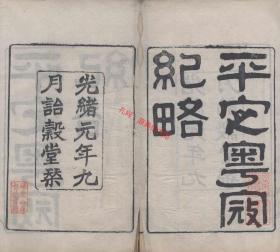 平定粵寇
紀略
光緒元年九
月詒穀堂棨